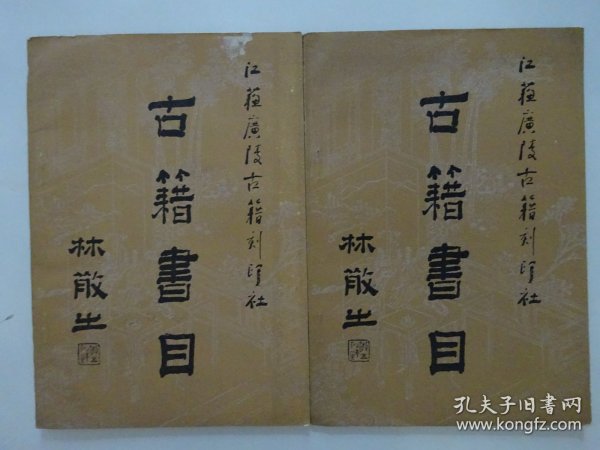 江蘇廣陵古籍刻印社
古籍書目
林散之
江蘇廣陵古籍刻印社
古籍書目
林散之
孔夫子旧書网
www.kongfz.com